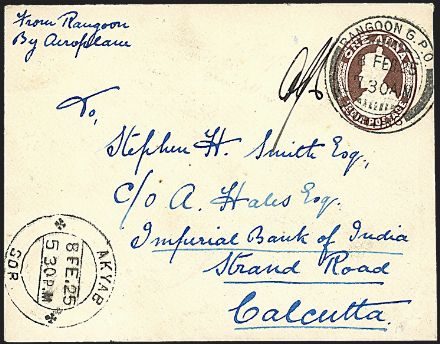 From Rangoon
By Aeroplane
RANGOON G.P.O.
8 FE
7.30A
ONE ANNA
To,
Stephen H. Smith Esq.,
C/o A. Hales Esq.
Imperial Bank of India
Strand Road
Calcutta.
AKYAB
8 FE. 25
5.30 P.M
SOR.